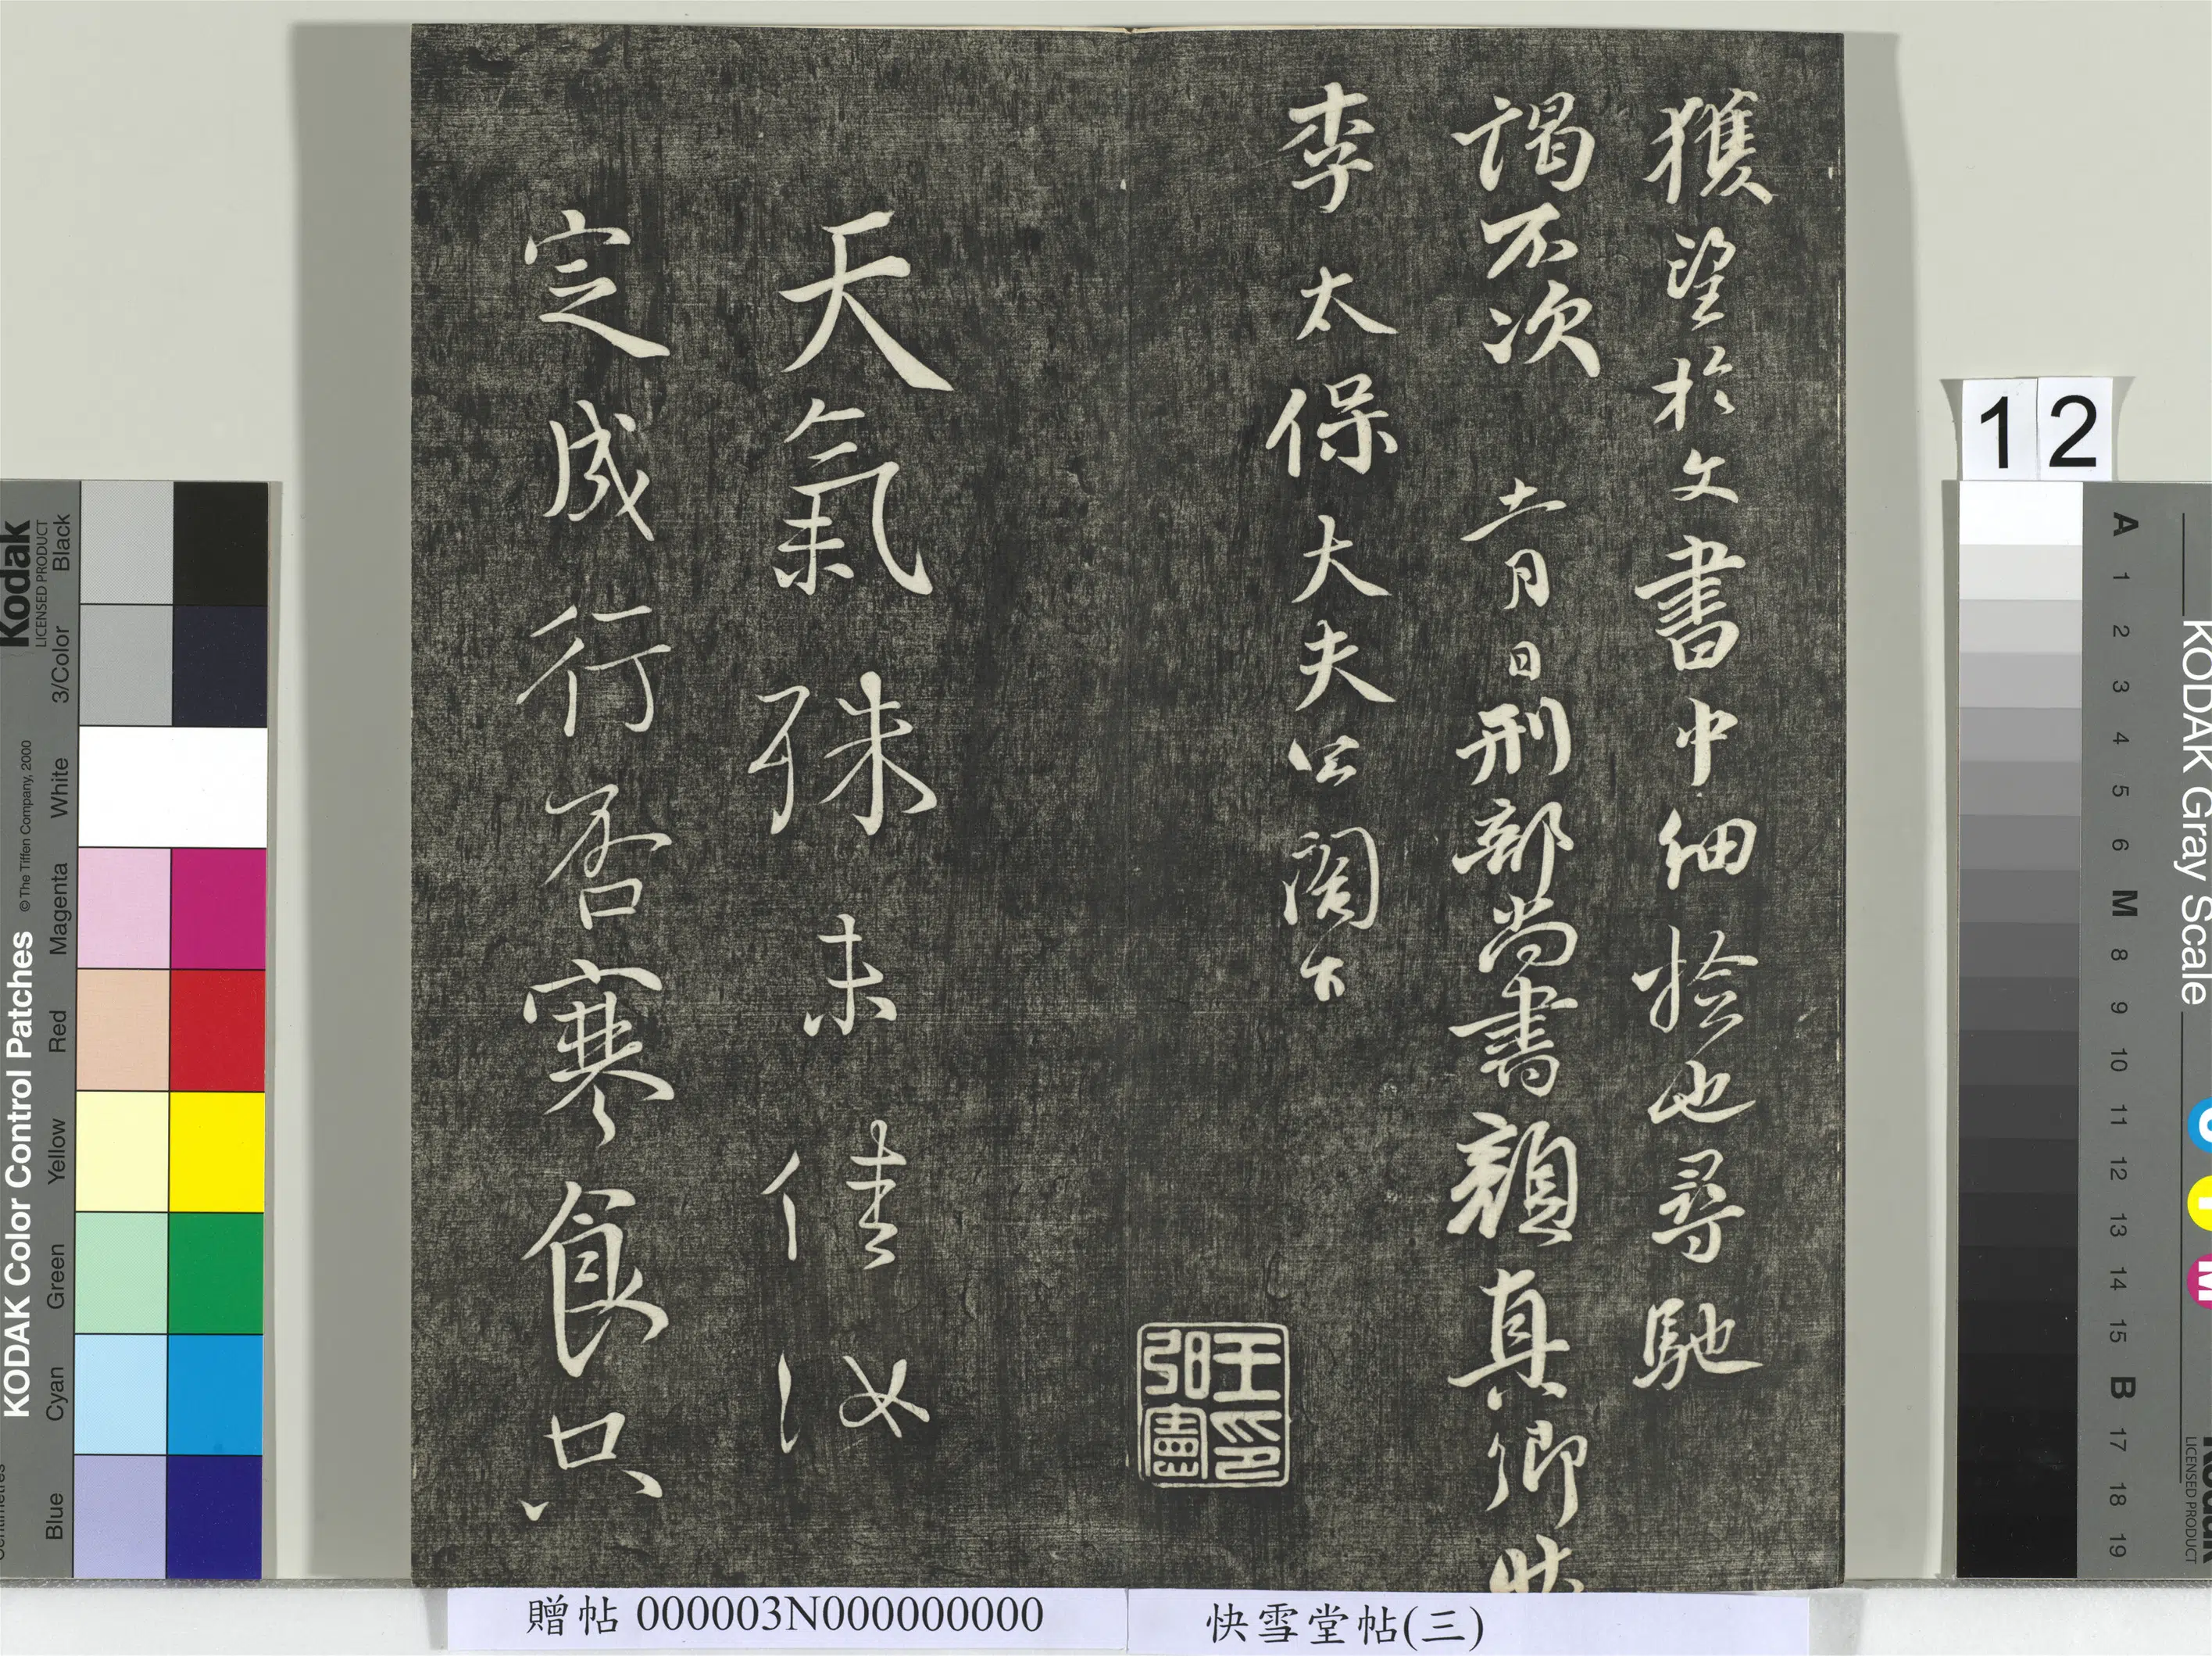 獲望於文書中細撿也尋馳
謁不次 十一月日刑部尚書顏真卿狀
李太保大夫公閤下
王印弘憲
天氣殊未佳汝
定成行否寒食只
12
贈帖 000003N000000000
快雪堂帖(三)
KODAK Color Control Patches
© The Tiffen Company, 2000
Kodak
LICENSED PRODUCT
Blue Cyan Green Yellow Red Magenta White 3/Color Black
KODAK Gray Scale
A 1 2 3 4 5 6 M 8 9 10 11 12 13 14 15 B 17 18 19
C Y M
Kodak
LICENSED PRODUCT